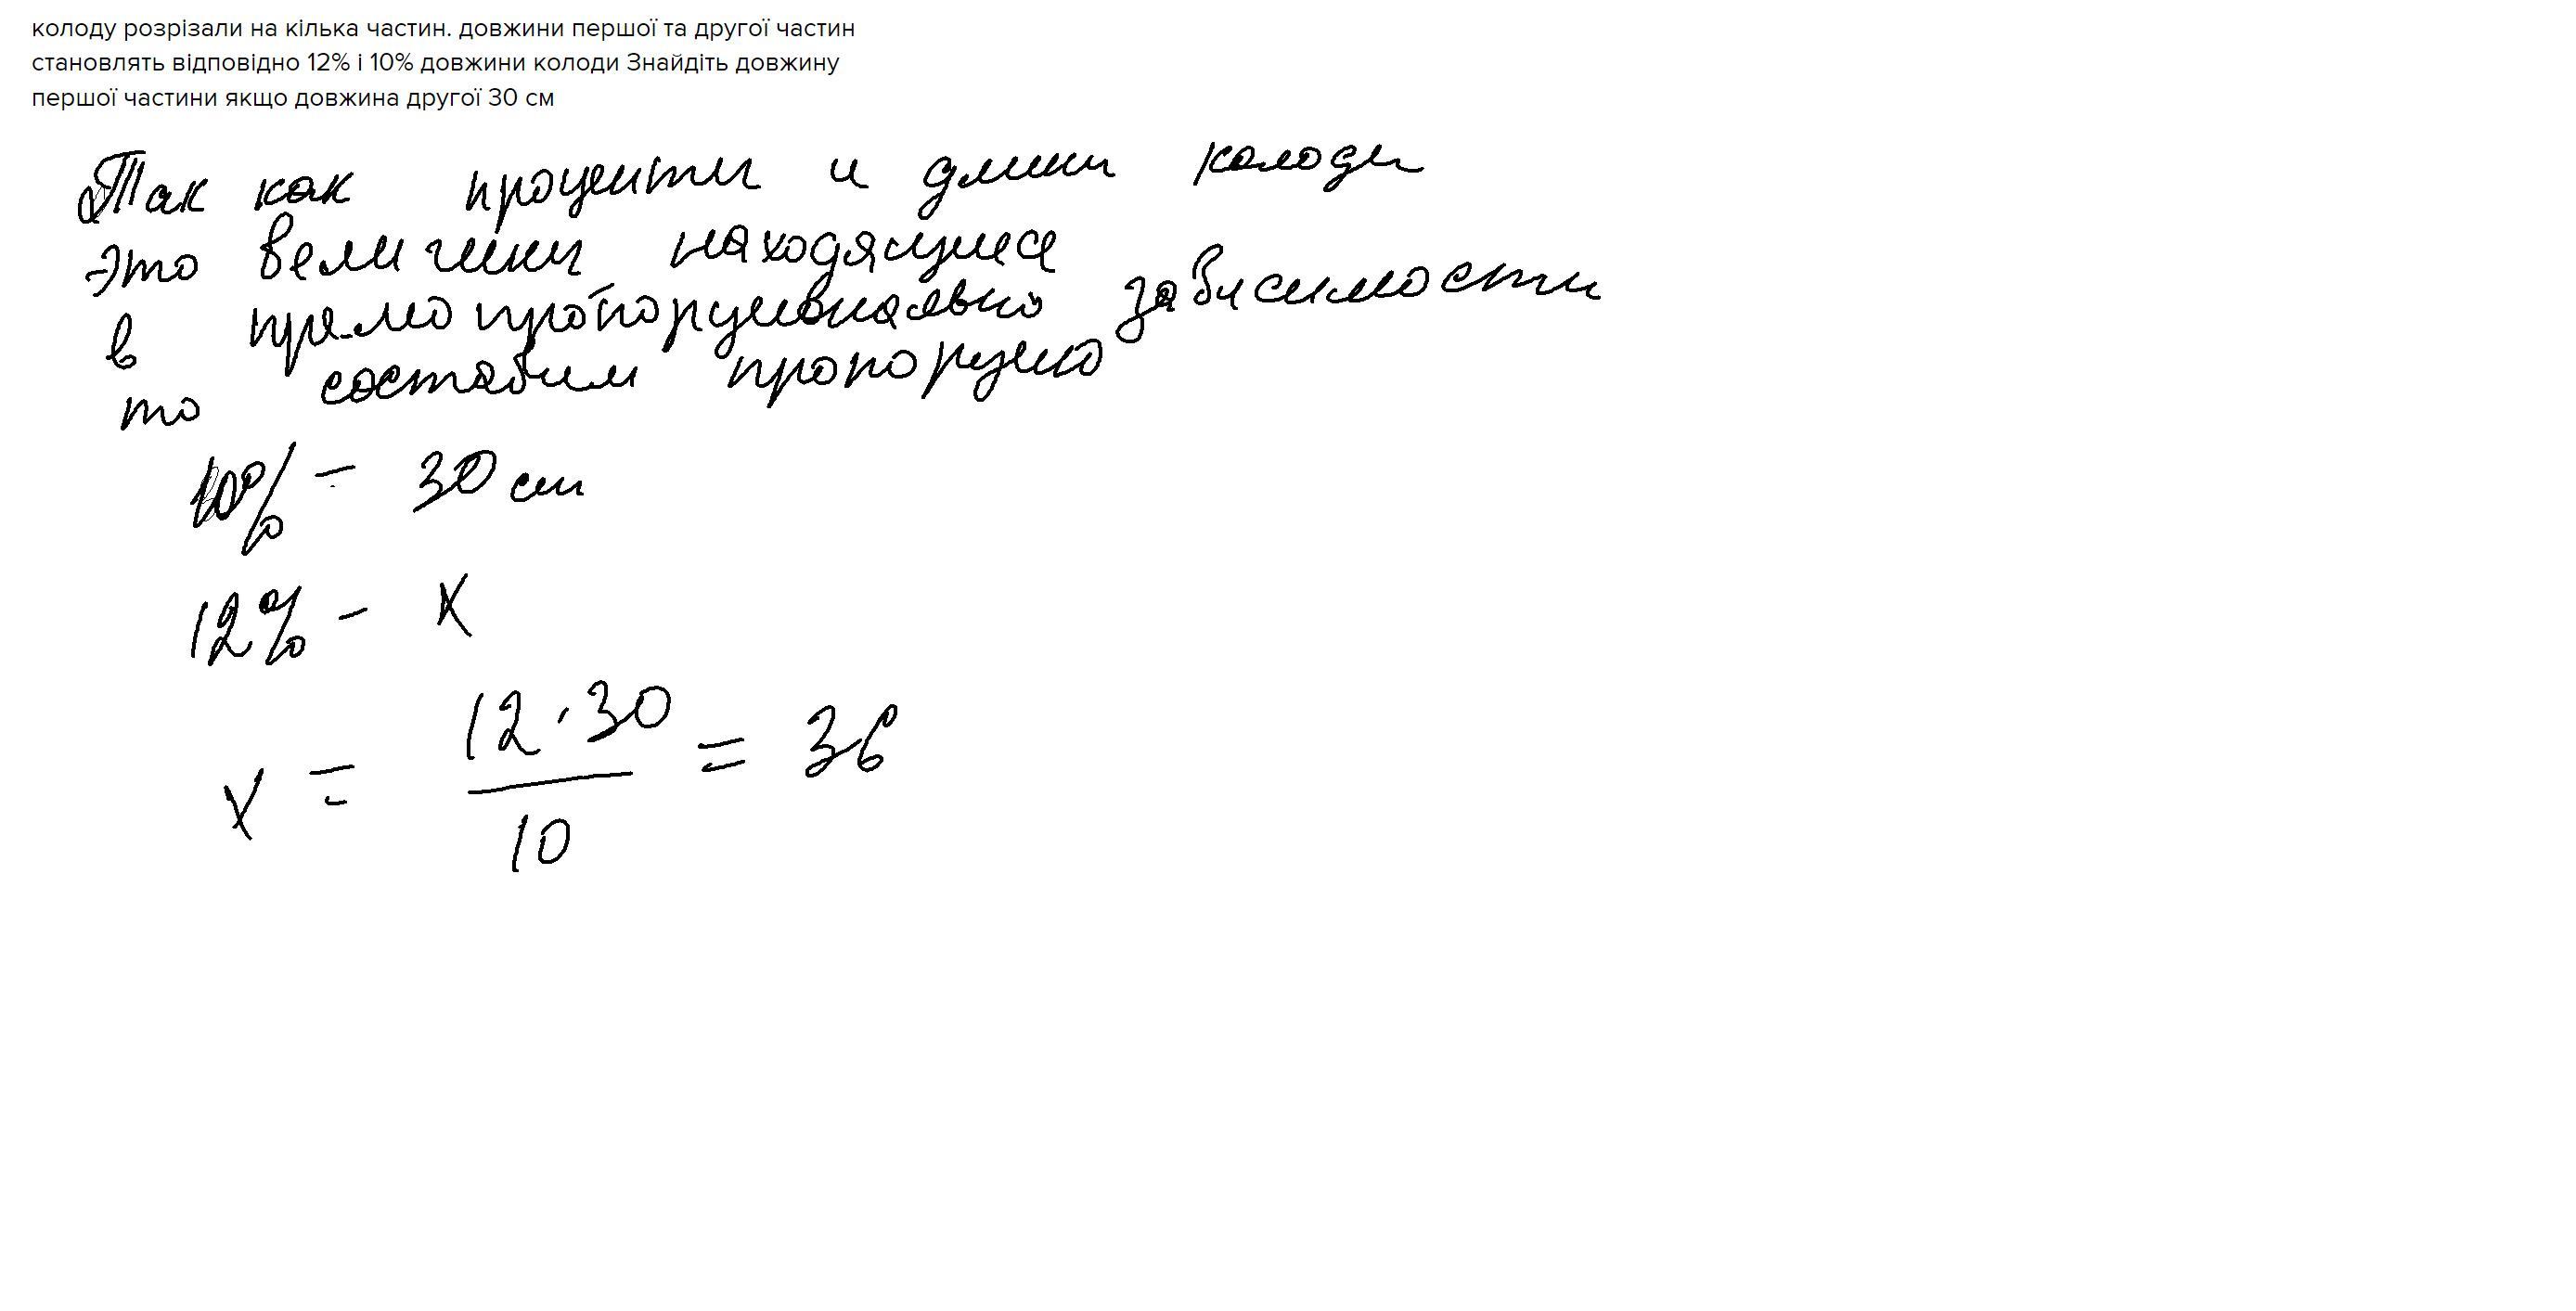 колоду розрізали на кілька частин. довжини першої та другої частин
становлять відповідно 12% і 10% довжини колоди Знайдіть довжину
першої частини якщо довжина другої 30 см
Так как проценты и длины колоды
это величины находящиеся
в прямо пропорционально зависимости
то составим пропорцию
10% - 30 см
12% - x
x = 12 · 30 / 10 = 36